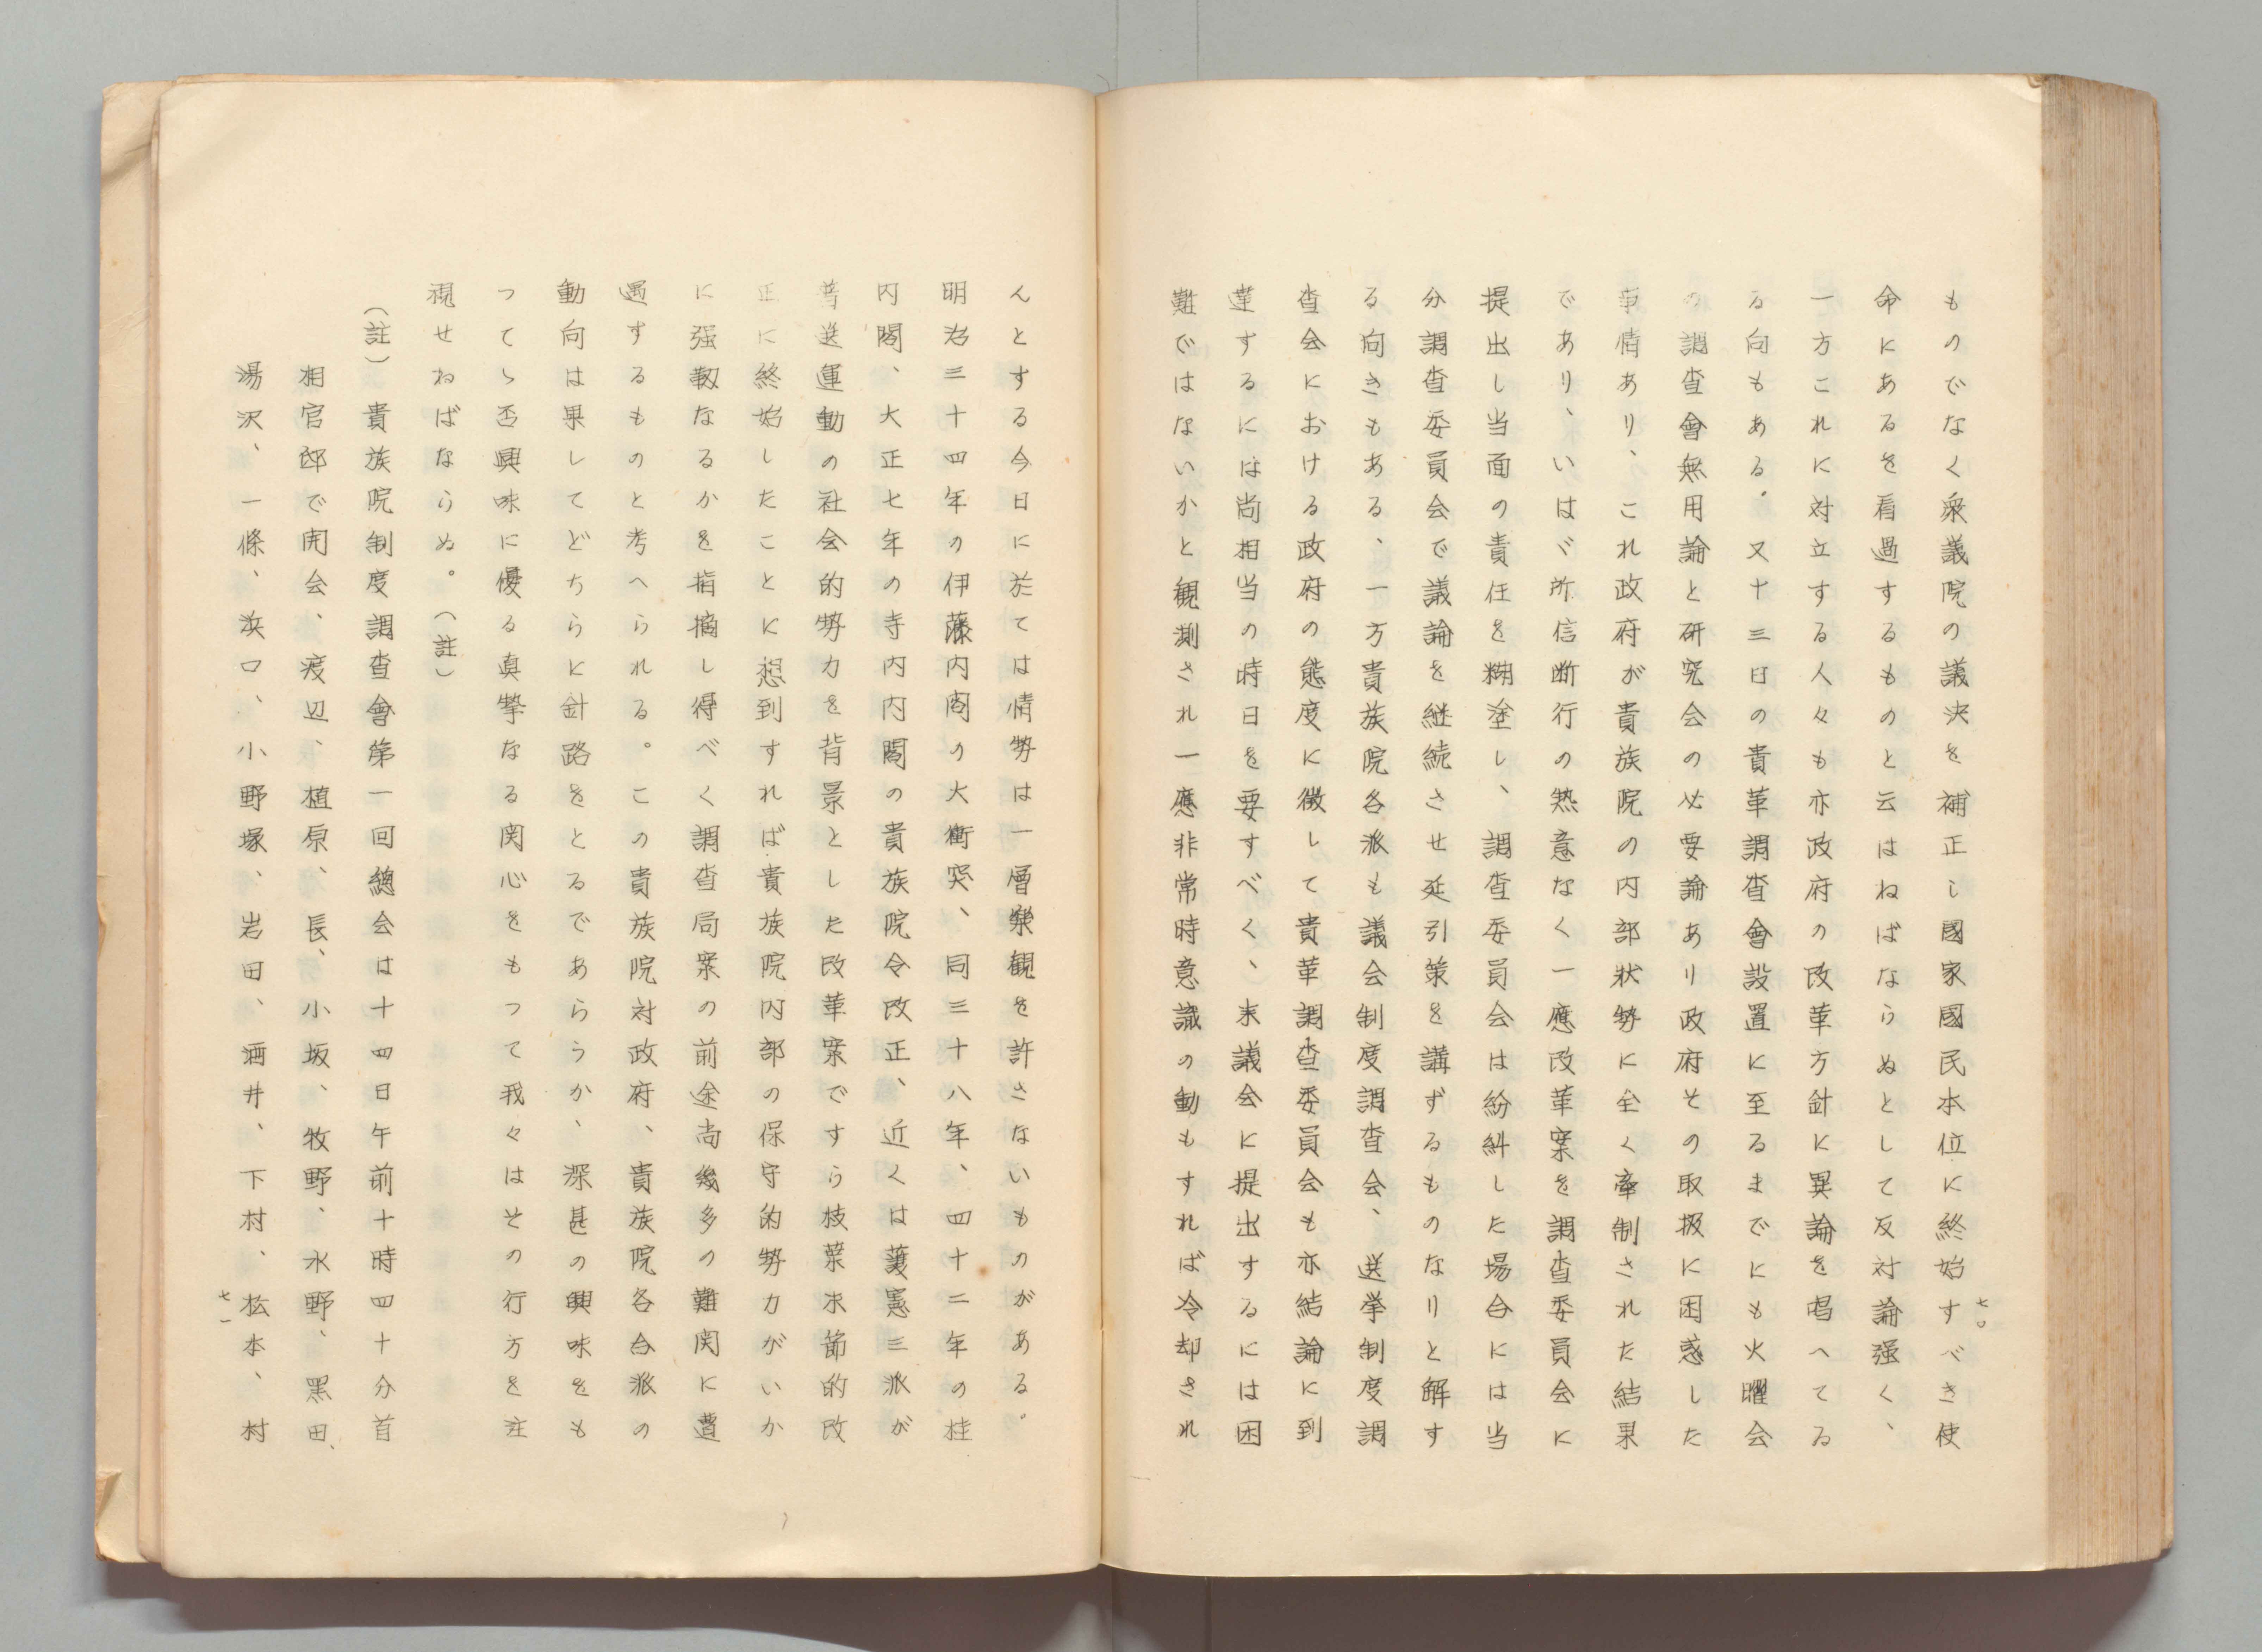 ものでなく衆議院の議決を補正し國家國民本位に終始すべき使
命にあるを看過するものと云はねばならぬとして反対論强く、
一方これに対立する人々も亦政府の改革方針に異論を唱へてゐ
る向もある。又十三日の貴革調査會設置に至るまでにも火曜会
の調査會無用論と研究会の必要論あり政府その取扱に困惑した
事情あり、これ政府が貴族院の内部状勢に全く牽制された結果
であり、いはゞ所信断行の熱意なく一應改革案を調査委員会に
提出し当面の責任を糊塗し、調査委員会は紛糾した場合には当
分調査委員会で議論を継続させ延引策を講ずるものなりと解す
る向きもある、一方貴族院各派も議会制度調査会、選挙制度調
査会における政府の態度に徴して貴革調査委員会も亦結論に到
達するには尚相当の時日を要すべく、来議会に提出するには困
難ではないかと観測され一應非常時意識の動もすれば冷却され
七〇
んとする今日に於ては情勢は一層楽観を許さないものがある。
明治三十四年の伊藤内閣の大衝突、同三十八年、四十二年の桂
内閣、大正七年の寺内内閣の貴族院令改正、近くは護憲三派が
普選運動の社会的勢力を背景とした改革案ですら枝葉末節的改
正に終始したことに想到すれば貴族院内部の保守的勢力がいか
に强靱なるかを指摘し得べく調査局案の前途尚幾多の難関に遭
遇するものと考へられる。この貴族院対政府、貴族院各会派の
動向は果してどちらに針路をとるであらうか、深甚の興味をも
つてゝ否興味に優る真摯なる関心をもつて我々はその行方を注
視せねばならぬ。（註）
（註）貴族院制度調査會第一回總会は十四日午前十時四十分首
相官邸で開会、渡辺、植原、長、小坂、牧野、水野、黑田、
湯沢、一條、浜口、小野塚、岩田、酒井、下村、松本、村
七一